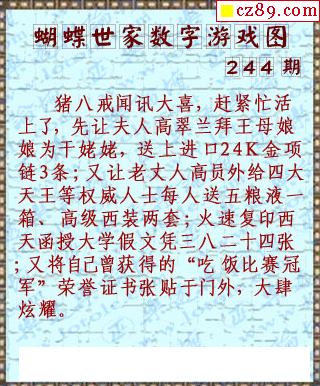 cz89.com
蝴蝶世家数字游戏图
244 期
猪八戒闻讯大喜，赶紧忙活
上了，先让夫人高翠兰拜王母娘
娘为干姥姥，送上进口24K金项
链3条；又让老丈人高员外给四大
天王等权威人士每人送五粮液一
箱、高级西装两套；火速复印西
天函授大学假文凭三八二十四张
；又将自己曾获得的“吃 饭比赛冠
军”荣誉证书张贴于门外，大肆
炫耀。